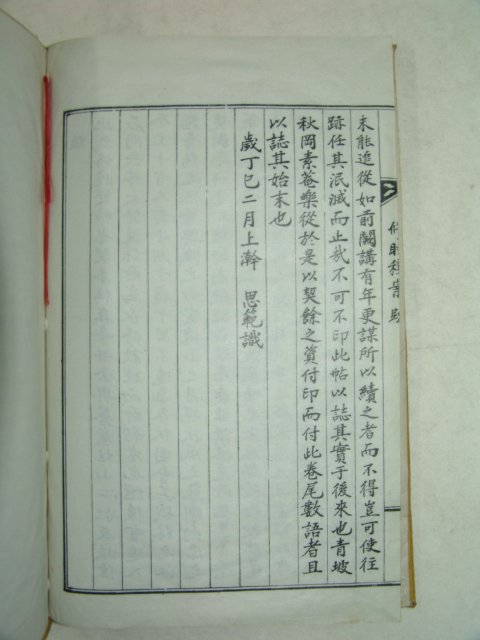 未能追從如前闕講有年更謀所以續之者而不得豈可使往
跡任其泯滅而止哉不可不印此帖以誌其實于後來也青坡
秋岡素菴樂從於是以契餘之資付印而付此卷尾數語者且
以誌其始末也
歲丁巳二月上澣 思範識